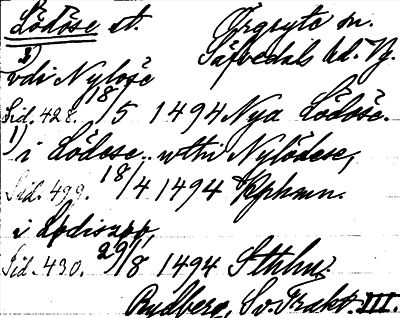 Lödöse st. Örgryte sn.
Säfvedals hd. Vg.
2) vdi Nyløsé
Sid. 428. 18/5 1494 Nya Lödöse.
1) i Lödese, wthi Nylödese,
Sid. 499. 18/4 1494 Kphmn.
i Lødisapp,
Sid. 430. 29/8 1494 Sthlm.
Rydberg, Sv. Trakt. III.